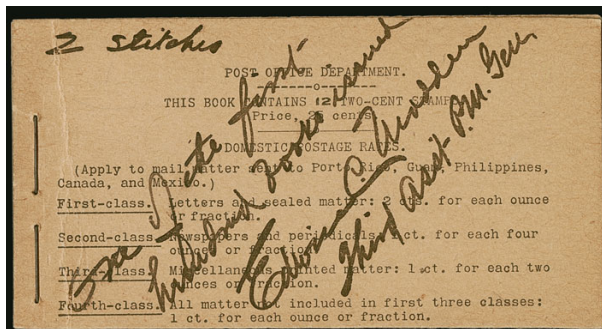 2 stitches
POST OFFICE DEPARTMENT.
THIS BOOK CONTAINS 12 TWO-CENT STAMPS
Price, 25 cents.
DOMESTIC POSTAGE RATES.
(Apply to mail matter sent to Porto Rico, Guam, Philippines,
Canada, and Mexico.)
First-class. Letters and sealed matter: 2 cts. for each ounce
or fraction.
Second-class. Newspapers and periodicals: 1 ct. for each four
ounces or fraction.
Third-class. Miscellaneous printed matter: 1 ct. for each two
ounces or fraction.
Fourth-class. All matter not included in first three classes:
1 ct. for each ounce or fraction.
One of the first
hundred books issued
Edwin C. Madden
Third Asst. P.M. Gen.